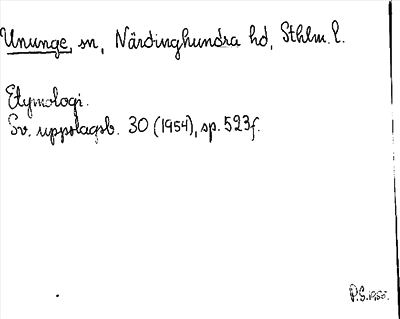 Ununge, sn, Närdinghundra hd, Sthlm. l.
Etymologi.
Sv. uppslagsb. 30 (1954), sp. 523f.
P.S.